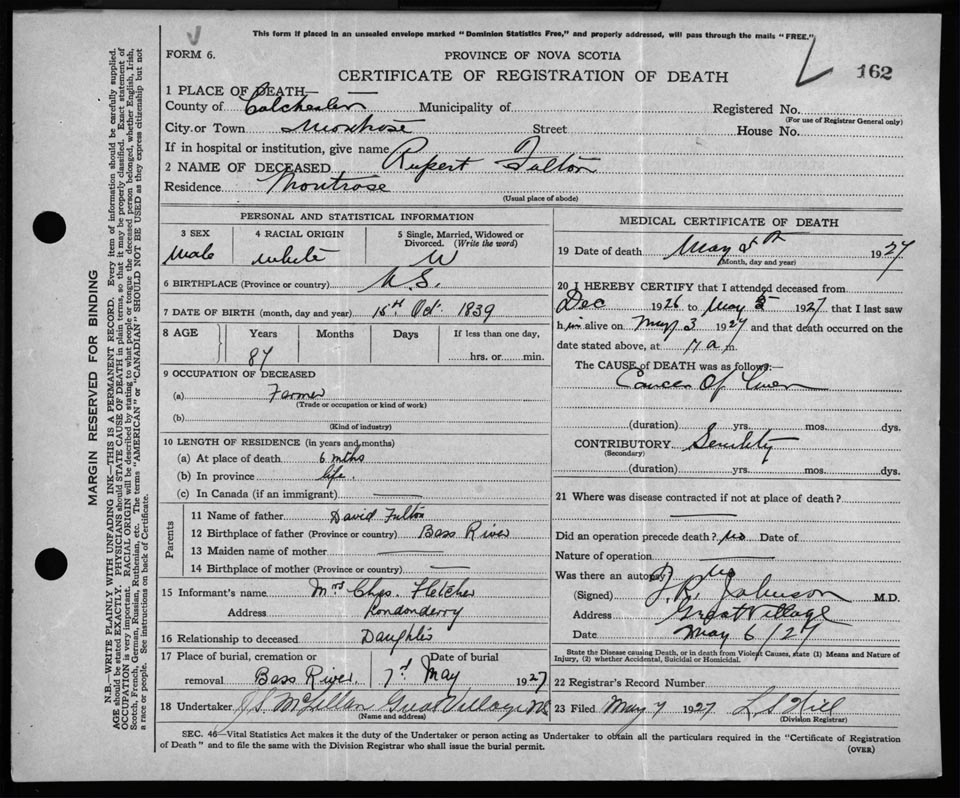 This form if placed in an unsealed envelope marked "Dominion Statistics Free," and properly addressed, will pass through the mails "FREE."
FORM 6.
PROVINCE OF NOVA SCOTIA
CERTIFICATE OF REGISTRATION OF DEATH
162
1 PLACE OF DEATH—
County of Colchester Municipality of Registered No.
(For use of Registrar General only)
City or Town Montrose Street House No.
If in hospital or institution, give name
2 NAME OF DECEASED Rupert Fulton
Residence Montrose
(Usual place of abode)
PERSONAL AND STATISTICAL INFORMATION
3 SEX 4 RACIAL ORIGIN 5 Single, Married, Widowed or Divorced. (Write the word)
Male White W
6 BIRTHPLACE (Province or country) N.S.
7 DATE OF BIRTH (month, day and year) 15th Oct. 1839
8 AGE Years Months Days If less than one day,
87 hrs. or min.
9 OCCUPATION OF DECEASED
(a) Farmer
(Trade or occupation or kind of work)
(b)
(Kind of industry)
10 LENGTH OF RESIDENCE (in years and months)
(a) At place of death 6 mths
(b) In province life.
(c) In Canada (if an immigrant)
Parents
11 Name of father David Fulton
12 Birthplace of father (Province or country) Bass River
13 Maiden name of mother
14 Birthplace of mother (Province or country)
15 Informant's name Mrs Chas. Fletcher
Address Londonderry
16 Relationship to deceased Daughter
17 Place of burial, cremation or removal Date of burial
Bass River. 7th May 1927
18 Undertaker Great Village NS
(Name and address)
MEDICAL CERTIFICATE OF DEATH
19 Date of death May 5th 1927
(Month, day and year)
20 I HEREBY CERTIFY that I attended deceased from
Dec 1926 to May 5 1927 that I last saw
him alive on May 3 1927 and that death occurred on the
date stated above, at 7 a m.
The CAUSE of DEATH was as follows:—
Cancer Of Liver
(duration) yrs. mos. dys.
CONTRIBUTORY Senility
(Secondary)
(duration) yrs. mos. dys.
21 Where was disease contracted if not at place of death?
Did an operation precede death? No Date of
Nature of operation
Was there an autopsy No
(Signed) Johnson M.D.
Address Great Village
Date May 6/27
State the Disease causing Death, or in death from Violent Causes, state (1) Means and Nature of Injury, (2) whether Accidental, Suicidal or Homicidal.
22 Registrar's Record Number
23 Filed May 7 1927 L S Hill
(Division Registrar)
SEC. 46—Vital Statistics Act makes it the duty of the Undertaker or person acting as Undertaker to obtain all the particulars required in the "Certificate of Registration
of Death" and to file the same with the Division Registrar who shall issue the burial permit.
(OVER)
MARGIN RESERVED FOR BINDING
N.B.—WRITE PLAINLY WITH UNFADING INK—THIS IS A PERMANENT RECORD. Every item of information should be carefully supplied.
AGE should be stated EXACTLY. PHYSICIANS should STATE CAUSE OF DEATH in plain terms, so that it may be properly classified. Exact statement of
OCCUPATION is very important. RACIAL ORIGIN will be described by stating to what people or tongue the deceased person belonged, whether English, Irish,
Scotch, French, German, Russian, Ruthenian, etc. The terms "AMERICAN" or "CANADIAN" SHOULD NOT BE USED as they express citizenship but not
a race or people. See instructions on back of Certificate.